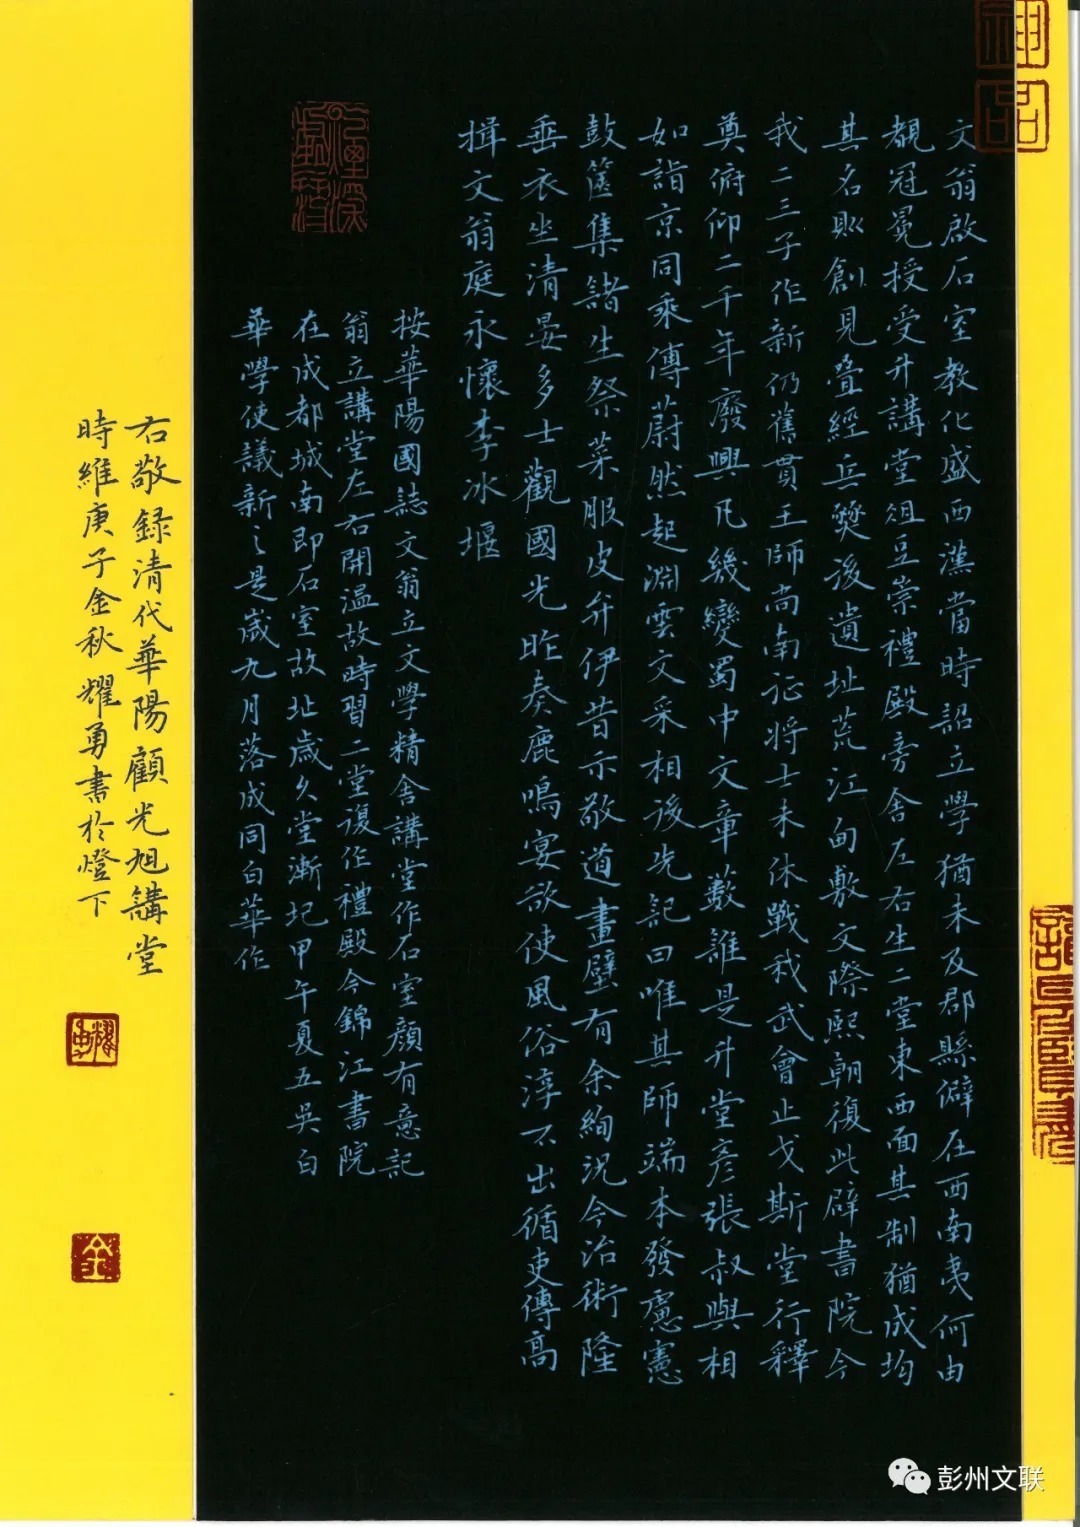 文翁啟石室教化盛西漢當時詔立學猶未及郡縣僻在西南夷何由
覩冠冕授受升講堂俎豆崇禮殿旁舍左右生二堂東西面其制猶成均
其名則創見疊經兵燹後遺址荒江甸敷文際熙朝復此辟書院今
我二三子作新仍舊貫王師尚南征將士未休戰我武會止戈斯堂行釋
奠俯仰二千年廢興凡幾變蜀中文章藪誰是升堂彥張叔與相
如詣京同乘傳蔚然起淵雲文采相後先記曰唯其師端本發慮憲
鼓篋集諸生祭菜服皮弁伊昔示敬道畫壁有余絢況今治術隆
垂衣坐清晏多士觀國光昨奏鹿鳴宴欲使風俗淳不出循吏傳高
揖文翁庭永懷李冰堰
按華陽國誌文翁立文學精舍講堂作石室顏有意記
翁立講堂左右開溫故時習二堂復作禮殿今錦江書院
在成都城南即石室故址歲久堂漸圮甲午夏五吳白
華學使議新之是歲九月落成同白華作
右敬録清代華陽顧光旭講堂
時維庚子金秋耀勇書於燈下
神品
耀勇
彭州文联